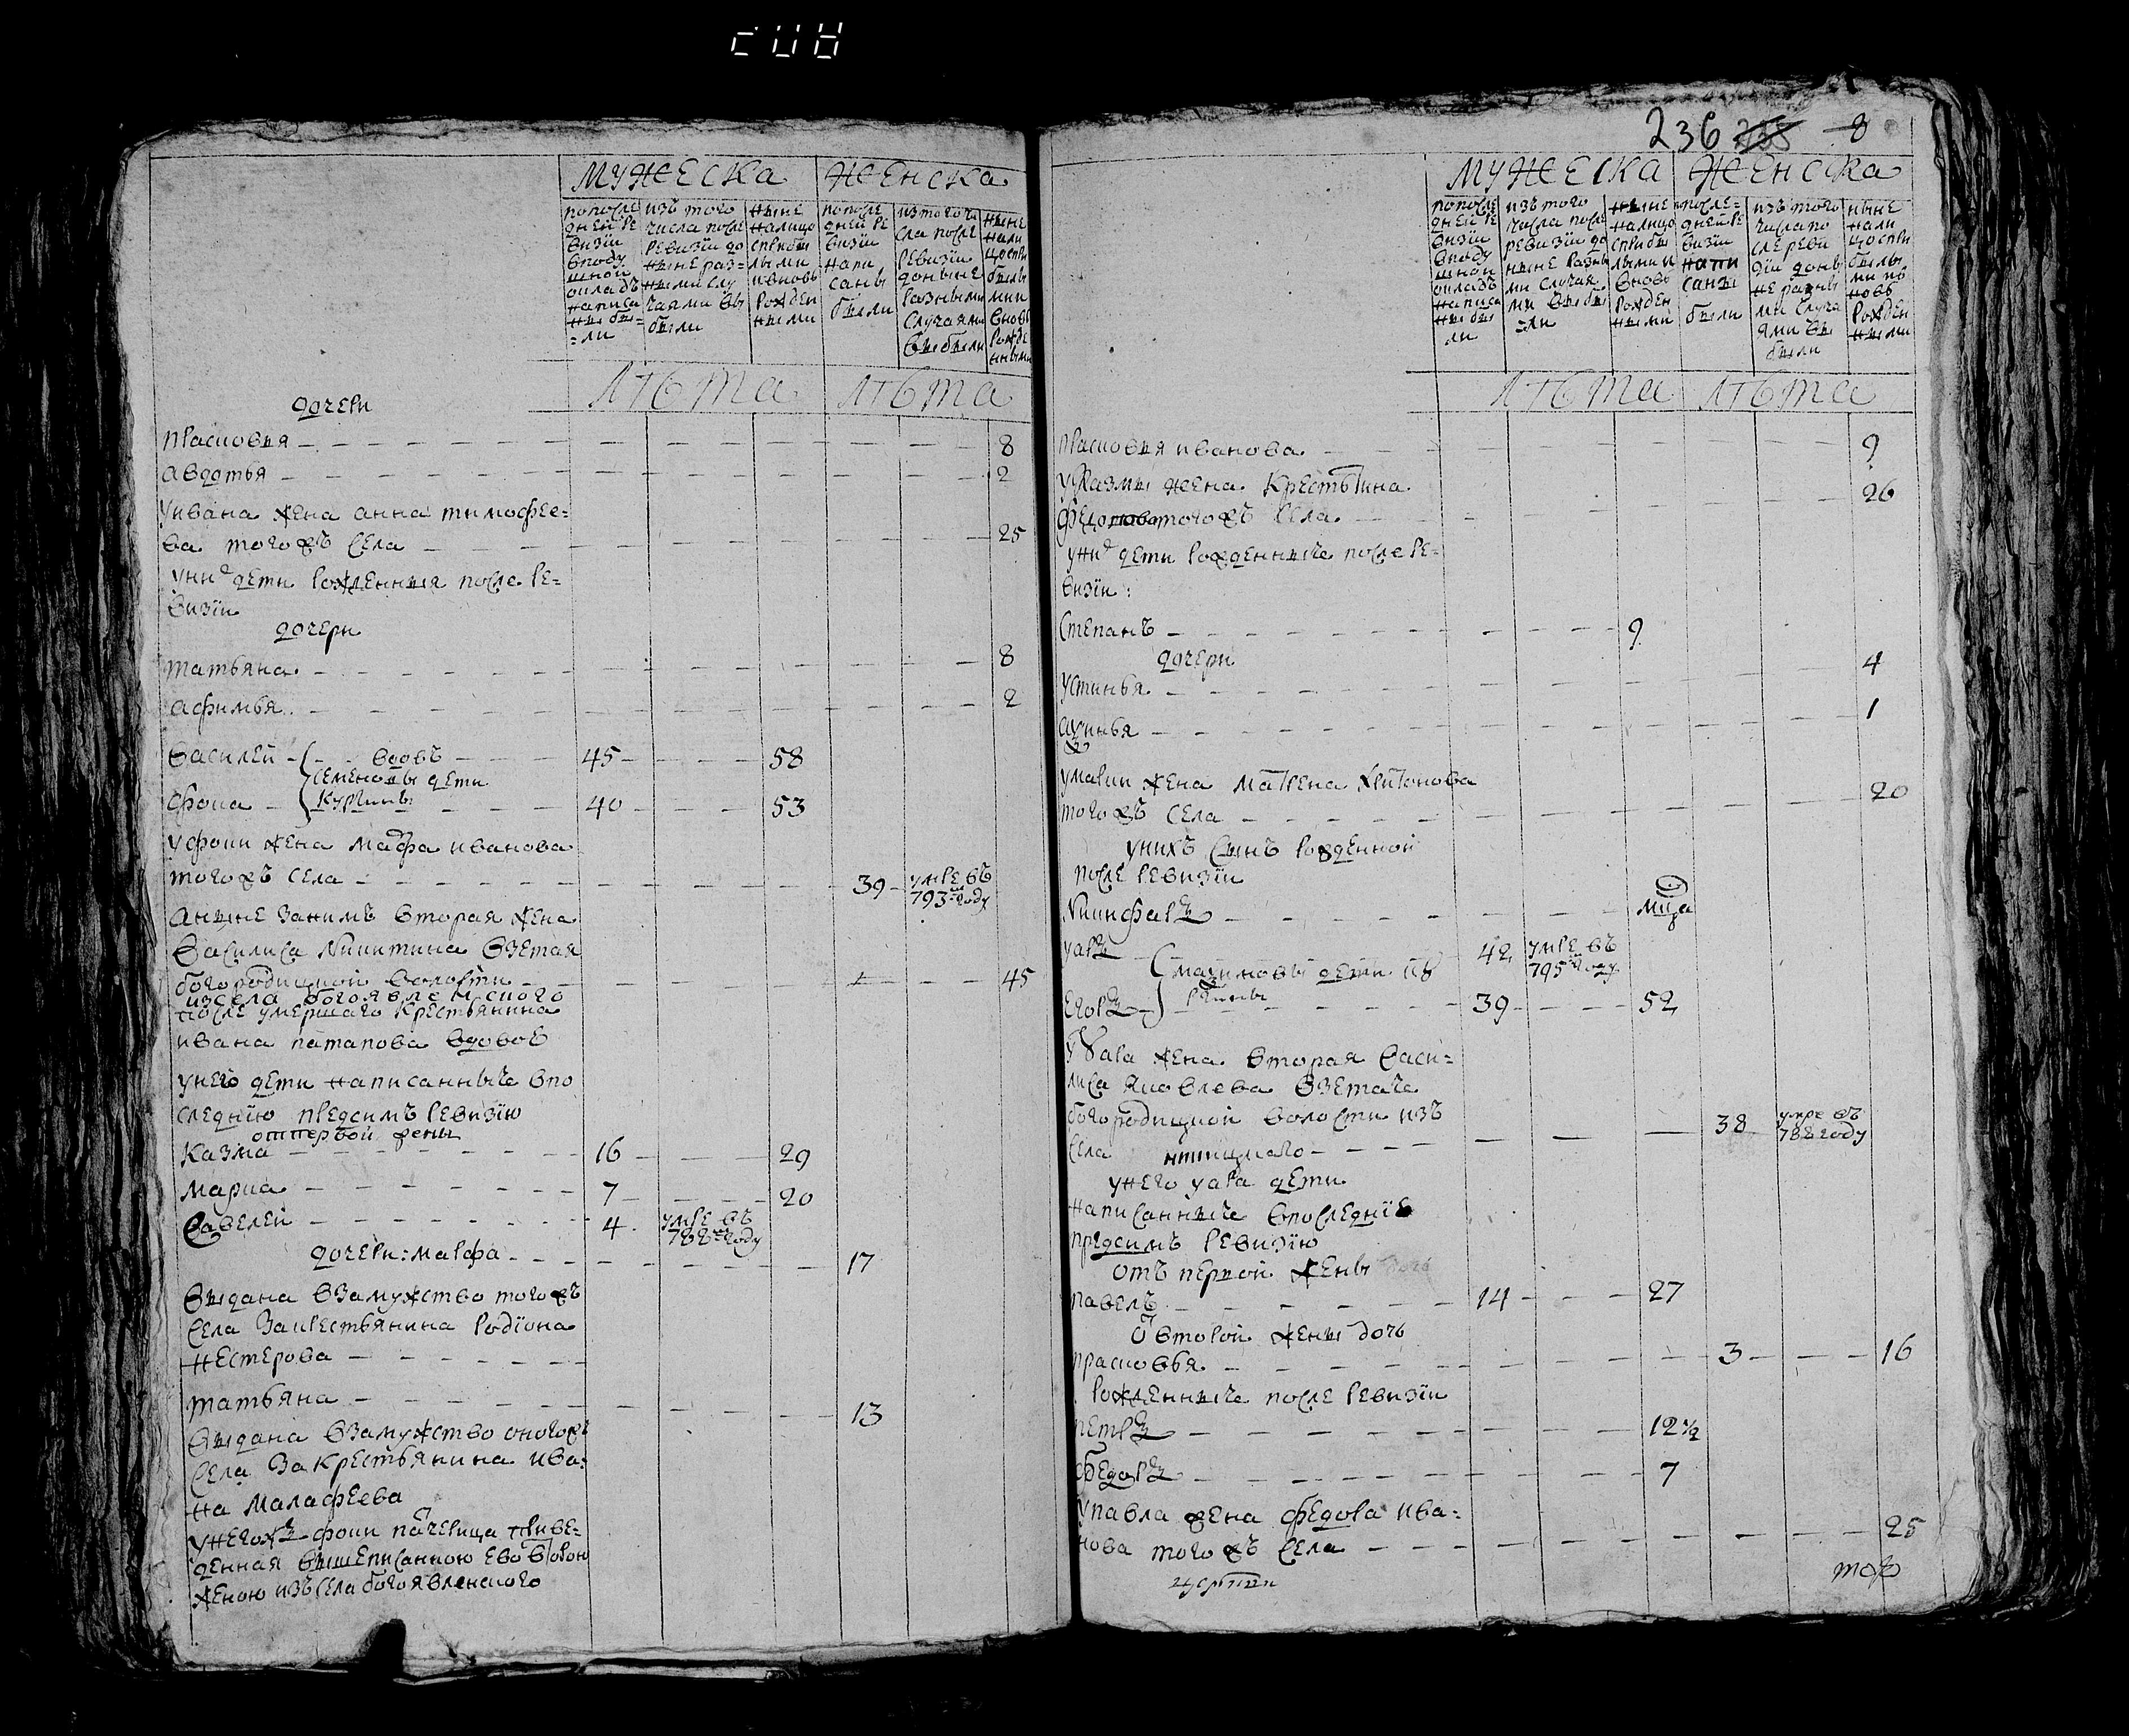 мужеска женска
по после дней ре визiи в поду шной окладъ написа ны бы= =ли
изъ того числа после ревизiи до ныне раз= ными слу чаями вы были
ныне налицо с прибы лыми и вновь рожден ными
по после дней ре визiи напи саны были
из того чи сла после ревизiи до ныне разными случаями выбыли
ныне нали цо с при былы ми и вновь рожде нными
лѣта лѣта
дочери
Прасковья 8
Авдотья 2
у Ивана жена Анна Тимофее=
ва того жъ села 25
у них дети рожденныя после ре=
визiи
дочери
Татьяна 8
Афимья 2
Василей вдовъ 45 58
Семеновы дети
Фока 40 53
у Фоки жена Марфа Иванова
того жъ села 39 умре въ 793м году
а ныне за нимъ вторая жена
Василиса Никитина взетая
богородицкой волости 45
из села богоявленского
после умершаго крестьянина
Ивана Патапова вдовою
у него дети написанные в по
следнюю пред симъ ревизiю
от первой жены
Казма 16 29
Марка 7 20
Савелей 4 умре въ 788м году
дочери: Марфа 17
выдана в замужство того жъ
села за крестьянина Родiона
Нестерова
Татьяна 13
выдана в замужство оного жъ
села за крестьянина Ива=
на Малафеева
у него жъ Фоки падчерица приве=
денная вышеписанною ево второю
женою изъ села богоявленского
236 8
мужеска женска
по после дней ре визiи в поду шной окладъ написа ны бы ли
изъ того числа после ревизiи до ныне разны ми случая ми выбы =ли
ныне налицо с прибы лыми и вновь рожден ными
после= дней ре визiи напи саны были
изъ того числа по сле реви зiи доны не разны ми случа ями вы были
ныне нали цо с при былы ми и в новь рожден ными
лѣта лѣта
Прасковья Иванова 9
у Казмы жена Крестьтина 26
того жъ села
у них дети рожденные после ре=
визiи:
Степанъ 9
дочери
Устинья 4
1
у Марки жена Матрена Харитонова
того жъ села 20
у нихъ сынъ рожденной
после ревизiи
Никифаръ
Уаръ 42 умре въ 795м году
дети
Егоръ 39 52
у Уара жена вторая Васи=
лиса Яковлева взетае
богородицкой волости изъ
села 38 умре въ 788 году
у него Уара дети
написанные в последнiю
пред симъ ревизiю
отъ первой жены
Павелъ 14 27
от второй жены дочь
Прасковья 3 16
рожденные после ревизiи
Петръ 12 ½
Федоръ 7
у Павла жена Федора Ива=
нова того жъ села 25